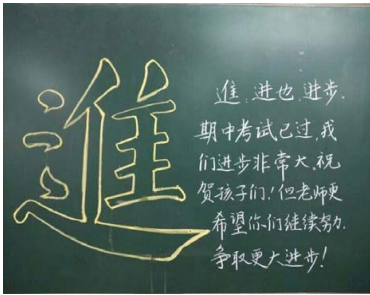 進
進,进也,进步.
期中考试已过,我
们进步非常大,祝
贺孩子们!但老师更
希望你们继续努力.
争取更大进步!